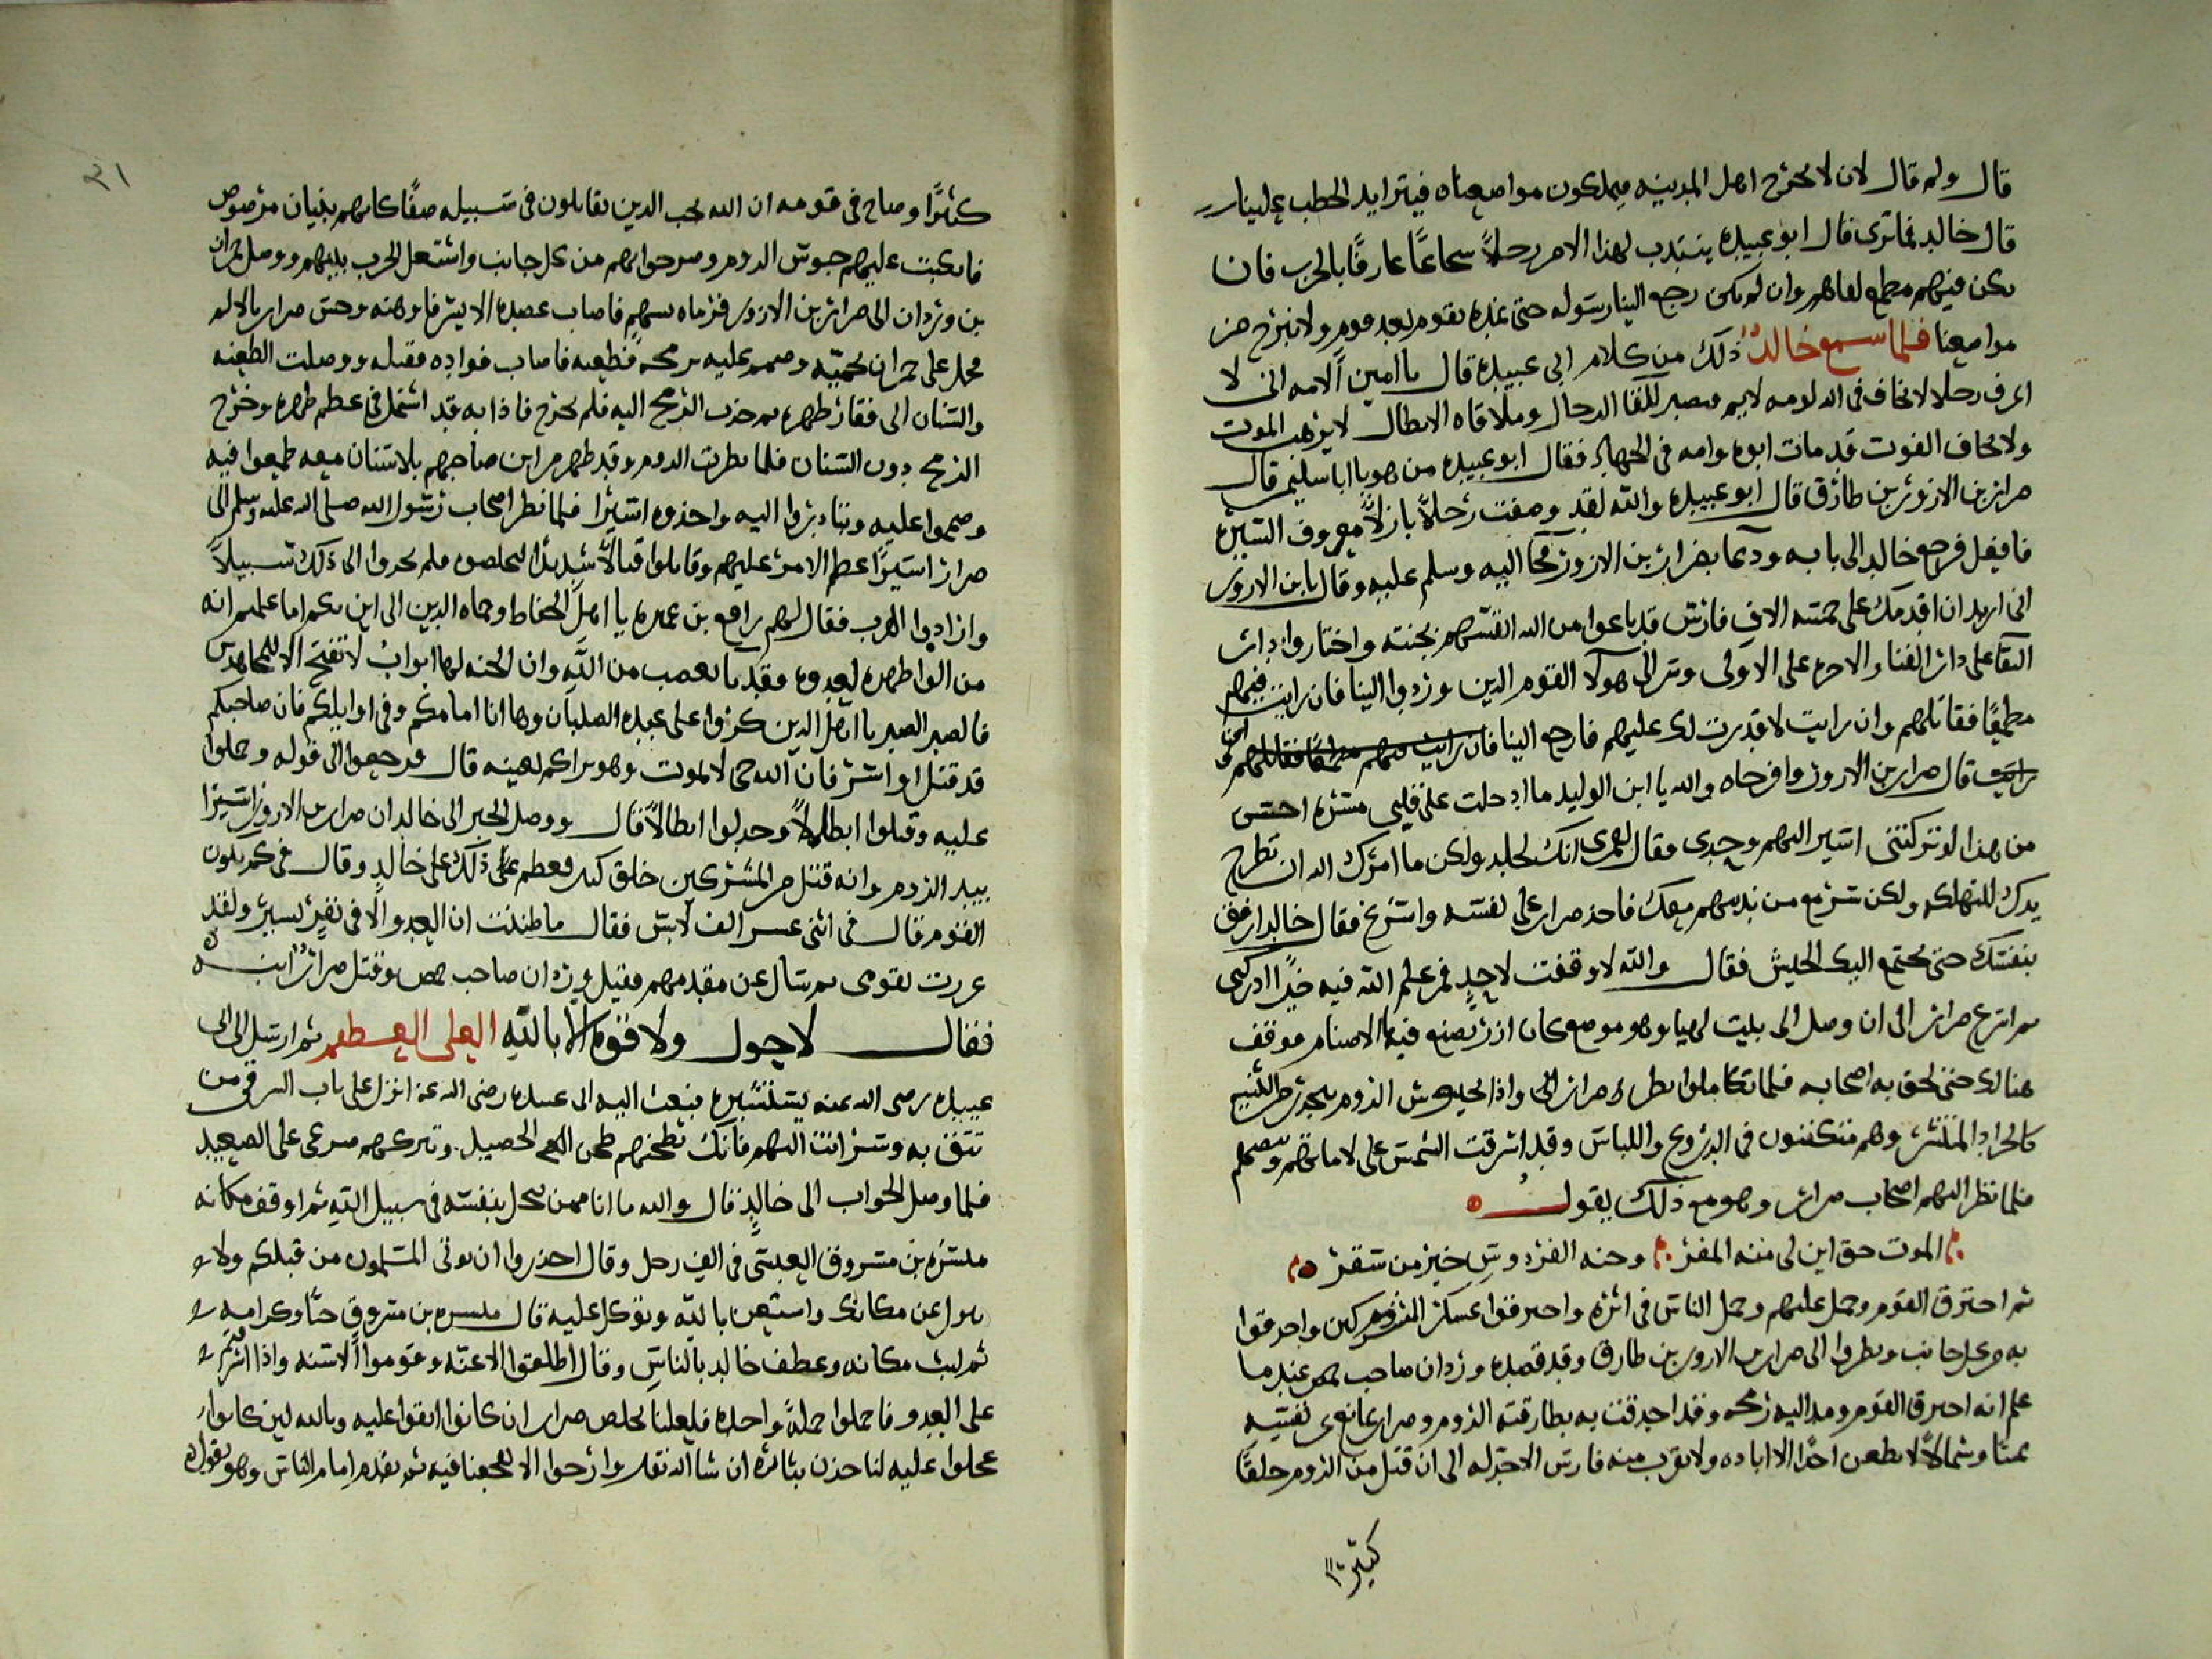 قال ولم قال لان لا يخرج اهل المدينه فيملكون مواضعناه فيتزايد الخطب علينا
قال خالد فما ترى قال ابو عبيده ينتدب لهذا الامر رجلاً شجاعًا عارفًا بالحرب فان
يكن فيهم مطمع لقاهم وان لم يكن رجع الينا رسوله حتى نمده بقوم بعد قوم ولا نبرح من
مواضعنا فلما سمع خالدٌ ذلك من كلام ابي عبيده قال يا امين الامه انى لا
اعرف رجلا لا يخاف في الله لومه لايم يصبر للقا الرجال وملاقاه الابطال لا يرهب الموت
ولا يخاف الفوت قد مات ابوه وامه في الجهاد فقال ابو عبيده من هو يا ابا سليمن قال
ضرار بن الازور بن طارق قال ابو عبيده والله لقد وصفت رجلاً بازلاً معروف السيره
فافعل فرجع خالد الى بابه ودعا بضرار بن الازور فجا اليه وسلم عليه وقال يا بن الازور
انى اريد ان اقدمك على خمسه الاف فارس قد باعوا من الله انفسهم بجنته واختاروا دار
البقا على دار الفنا والاخره على الاولى وتسر الى هولا القوم الدين وردوا الينا فان رايت فيهم
مطمعًا فقاتلهم وان رايت لا قدرت لك عليهم فارجع الينا فان رايت فيهم مطمعًا فقاتلهم
رايت قال ضرار بن الازور وافرحاه والله يا ابن الوليد ما ادخلت على قلبى مسره احسن
من هذا لو تركتنى اسير اليهم وحدى فقال لعمرى انك لجلد ولكن ما امرك الله ان تطرح
يدك للتهلكه ولكن سر مع من ندبهم معك فاخذ ضرار على نفسه واسرع فقال خالد ارفق
بنفسك حتى يجتمع اليك الجيش فقال والله لا وقفت لاحدٍ فمن علم الله فيه خيرًا ادركنى
ثم اسرع ضرار الى ان وصل الى بيت لهيا وهو موضع كان ازر يصنع فيها الاصنام فوقف
هنالك حتى لحق به اصحابه فلما تكاملوا نظر ضرار الى واذا لجيوش الروم
كالجراد المنتشر وهم متكفنون في الدروع واللباس وقد اشرقت الشمس على لاماتهم
فلما نظر اليهم اصحاب ضرار وهو مع ذلك يقول
الموت حق اين لى منه المفر وجنه الفردوسِ خير من سقر
ثم اخترق القوم وحمل عليهم وحمل الناس في اثره واخترقوا عسكر المشركين واحدقوا
به من كل جانب ونظروا الى ضرار بن الازور بن طارق وقد قصده وردان صاحب حمص عندما
علم انه اخترق القوم ومد اليه رمحه وقد احدقت به بطارقته الروم وضرار يمانع عن نفسه
يمينا وشمالا لا يطعن احدًا الا اباده ولا يقرب منه فارس الا جدله الى ان قتل من الروم خلقًا
كثيرًا
٢١
كثيرًا وصاح في قومه ان الله يحب الدين يقاتلون في سبيله صفًا كانهم بنيان مرصوص
فانكبت عليهم جيوش الروم وصرخوا بهم من كل جانب واشتعل الحرب بينهم ووصل حمران
بن وردان الى ضرار بن الازور فرماه بسهم فاصاب عضده الايسر فاوهنه وحس ضرار بالالم
فحمل على حمران بحميّه وصمم عليه برمحه فطعنه فاصاب فواده فقتله ووصلت الطعنه
والسنان الى فقار ظهره ثم جذب الرمح اليه فلم يخرج فاذا به قد اشتبك في عظم ظهره وخرج
الرمح بدون السنان فلما نظرت الروم وقد ظهر من ابن صاحبهم بلا سنان معه طمعوا فيه
وصمموا عليه وتبادروا اليه واخذوه اسيرًا فلما نظر اصحاب رسول الله صلى الله عليه وسلم الى
ضرار اسيرًا عظم الامر عليهم وقاتلوا قتالاً شديدًا ليخلصوه فلم يجدوا الى ذلك سبيلاً
وارادوا الهرب فقال لهم رافع بن عميره يا اهل الحفاظ وحماه الدين الى اين بكم اما علمتم انه
من الوا ظهره لعدوه فقد با بغضب من الله وان الجنه لها ابواب لا تفتح الا للمجاهدين
فالصبر الصبر يا اهل الدين كروا على عبده الصلبان وها انا امامكم وفي اوايلكم فان صاحبكم
قد قتل او اسر فان الله حى لا يموت وهو يراكم بعينه قال فرجعوا الى قوله وحملوا
عليه وقتلوا ابطالاً وجدلوا ابطالاً قال ووصل الخبر الى خالد ان ضرار بن الازور اسيرًا
بيد الروم وانه قتل من المشركين خلق كبير فعظم ذلك على خالدٍ وقال في كم يكون
القوم قال في اثنى عشر الف لابس فقال ما ظننت ان العدو الا في نفرٍ يسير ولقد
غررت بقومى ثم سال عن مقدمهم فقيل وردان صاحب حمص وقتل ضرار ابنه
فقال لا حول ولا قوه الا بالله العلى العظيم ثم ارسل الى ابى
عبيده رضى الله عنه يستشيره فبعث اليه ابى عبيده رضى الله عنه انزل على باب الشرقى من
تثق به وسر انت اليهم فانك تطحنهم طحن الحصيد وتتركهم صرعى على الصعيد
فلما وصل الجواب الى خالدٍ قال والله ما انا ممن يبخل بنفسه في سبيل الله ثم اوقف مكانه
ميسره بن مسروق العبسى في الف رجل وقال احذروا ان يوتى المسلمون من قبلكم ولا
تزول عن مكانك واستعن بالله وتوكل عليه قال ميسره بن مسروق حبًا وكرامه
ثم لبث مكانه وعطف خالد بالناس وقال اطلقوا الاعنّه وقوموا الاسنه واذا اشرفتم
على العدو فاحملوا حملةً واحده فلعلنا نخلص ضرار ان كانوا ابقوا عليه وبالله لين كانوا
عجلوا عليه لناخذن بثاره ان شا الله تعالى وارجوا الا يفجعنا فيه ثم تقدم امام الناس وهو يقول